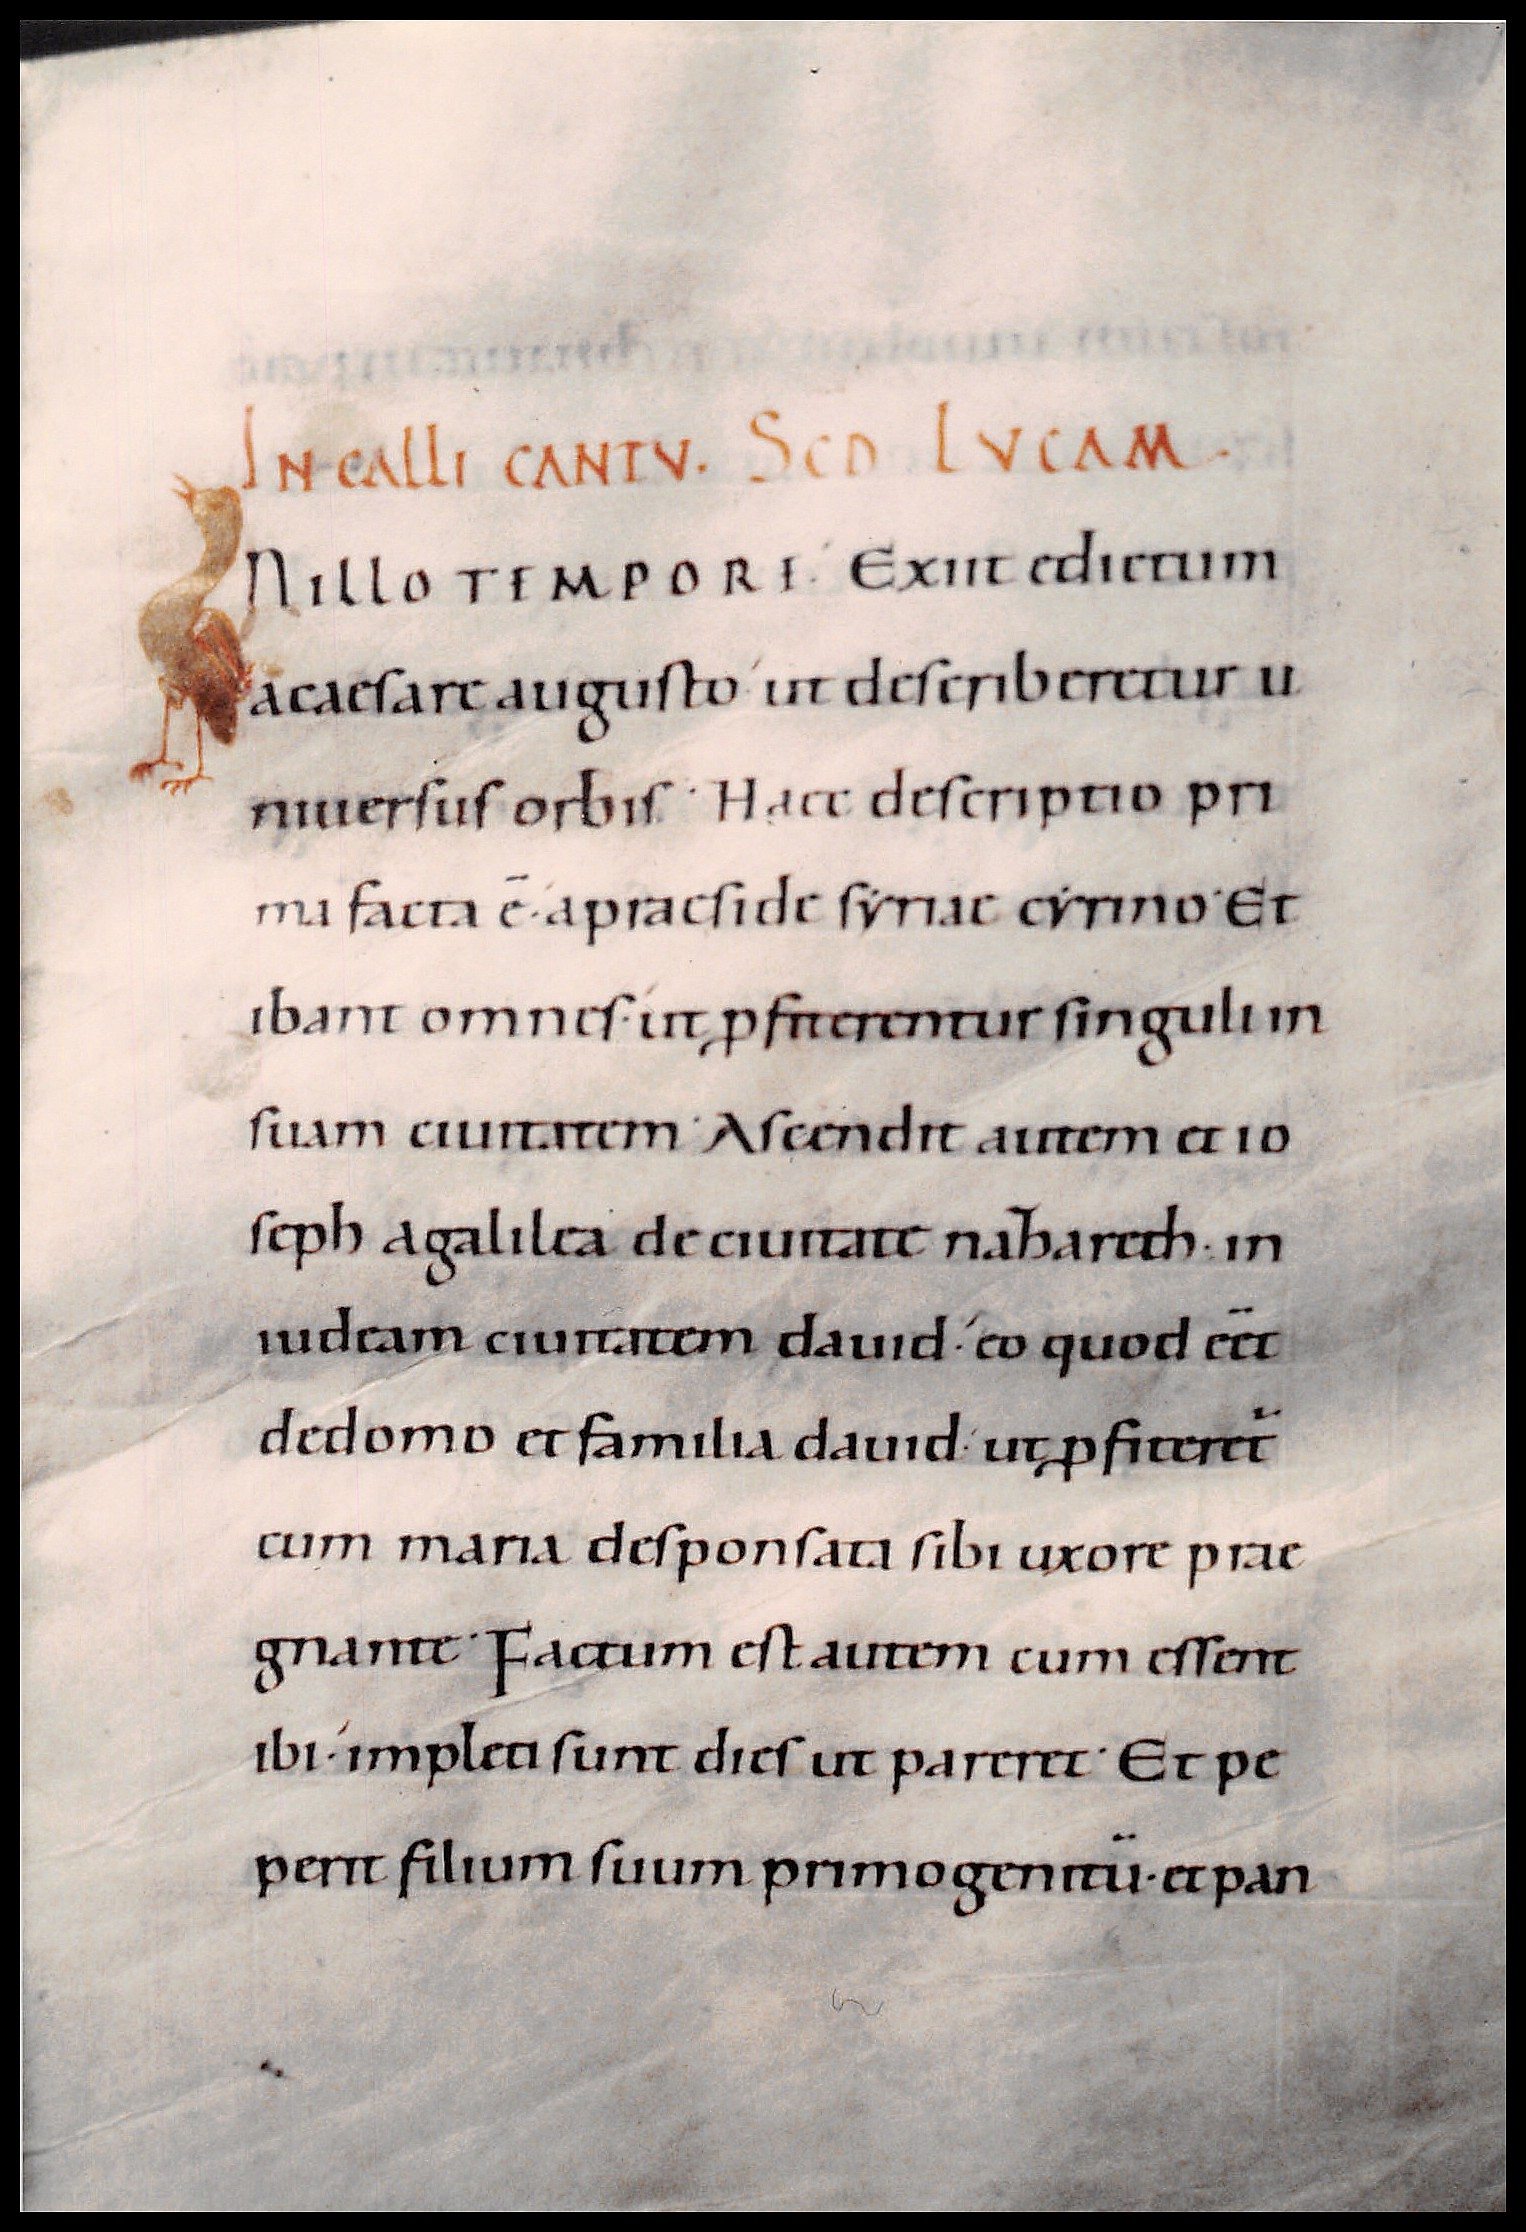 IN GALLI CANTV. SCD LVCAM.
IN ILLO TEMPORE. Exiit edictum
a caesare augusto ut describeretur u
niuersus orbis. Haec descriptio pri
ma facta ē. a praeside syriae cyrino. Et
ibant omnes. ut pfiterentur singuli in
suam ciuitatem. Ascendit autem et io
seph a galilea de ciuitate nazareth. in
iudeam ciuitatem dauid. eo quod eēt
de domo et familia dauid. ut pfiteret̄
cum maria desponsata sibi uxore prae
gnante. Factum est autem cum essent
ibi. impleti sunt dies ut pareret. Et pe
perit filium suum primogenitū. et pan